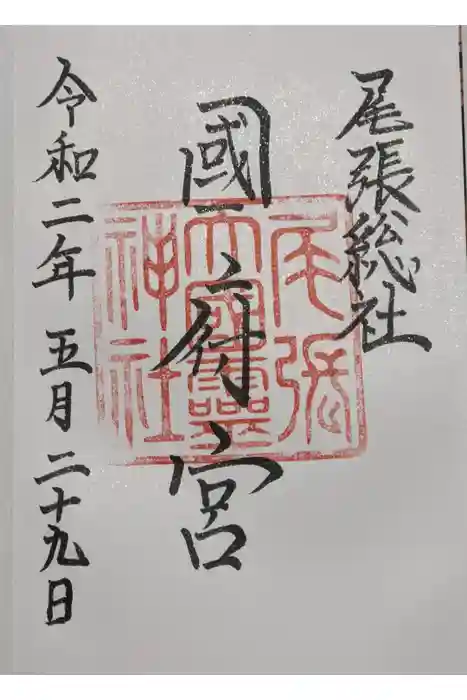 尾張総社
國府宮
令和二年五月二十九日
尾張
大國靈
神社